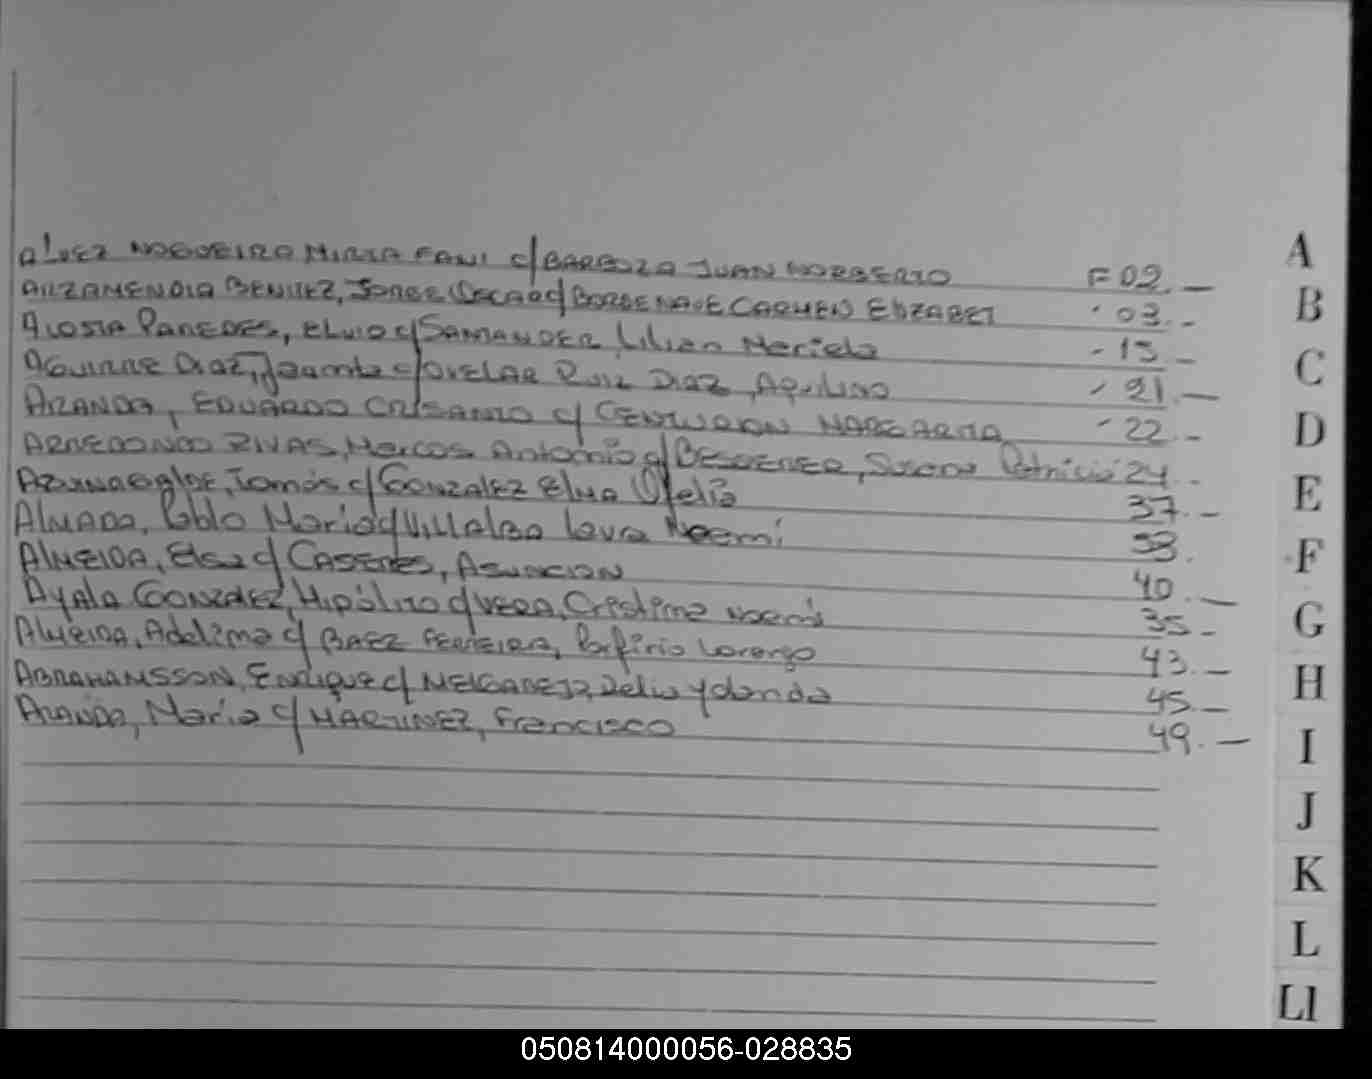 Alvez NOGUEIRA MIRTA FANI c/ BARBOZA JUAN NORBERTO F 02.-
ARZAMENDIA BENITEZ, JORGE OSCAR c/ BORDENAVE CARMEN ELIZABET " 03.-
Acosta Paredes, Elvio c/ SAMANDER, Lilian Mariela - 15 -
Aguirre Diaz, Jacinta c/ OVELAR RUIZ DIAZ, Aquilino - 21.-
ARANDA, EDUARDO CRISANTO c/ CENTURION MARGARITA - 22.-
ARREDONDO RIVAS, Marcos Antonio c/ , Susana Patricia 24.-
Tomás c/ GONZALEZ ELMA Ofelia 37.-
Almada, Pablo Mario c/ Villalba Laura Noemi 38.
ALMEIDA, Elsa c/ CASERES, ASUNCION 40.-
Ayala GONZALEZ, Hipólito c/ VERA, Cristina Noemí 35-
Almeida, Adelina c/ BAEZ FERREIRA, Porfirio Lorenzo 43.-
ABRAHAMSSON, Enrique c/ MELGAREJO, Delia Yolanda 45.-
ARANDA, Maria c/ MARTINEZ, Francisco 49.-
A
B
C
D
E
F
G
H
I
J
K
L
Ll
050814000056-028835